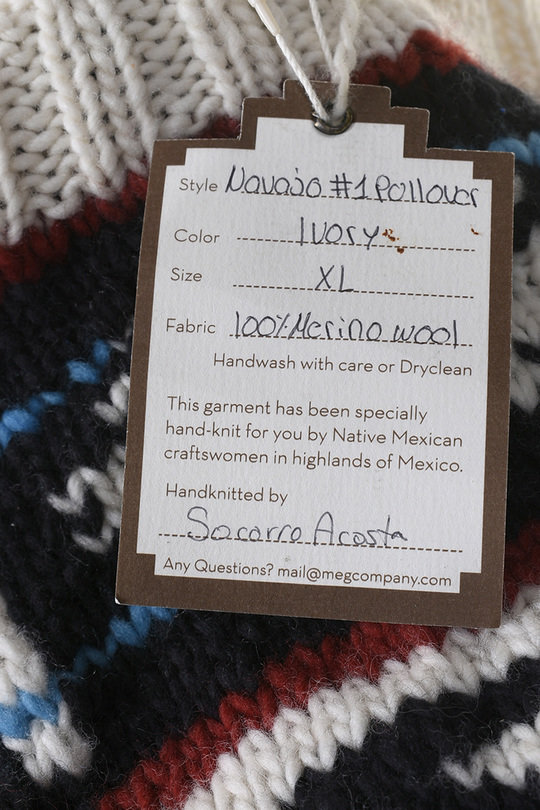 Style Navajo #1 Pollover
Color Ivory
Size XL
Fabric 100% Merino wool
Handwash with care or Dryclean
This garment has been specially
hand-knit for you by Native Mexican
craftswomen in highlands of Mexico.
Handknitted by
Socorro Acosta
Any Questions? mail@megcompany.com